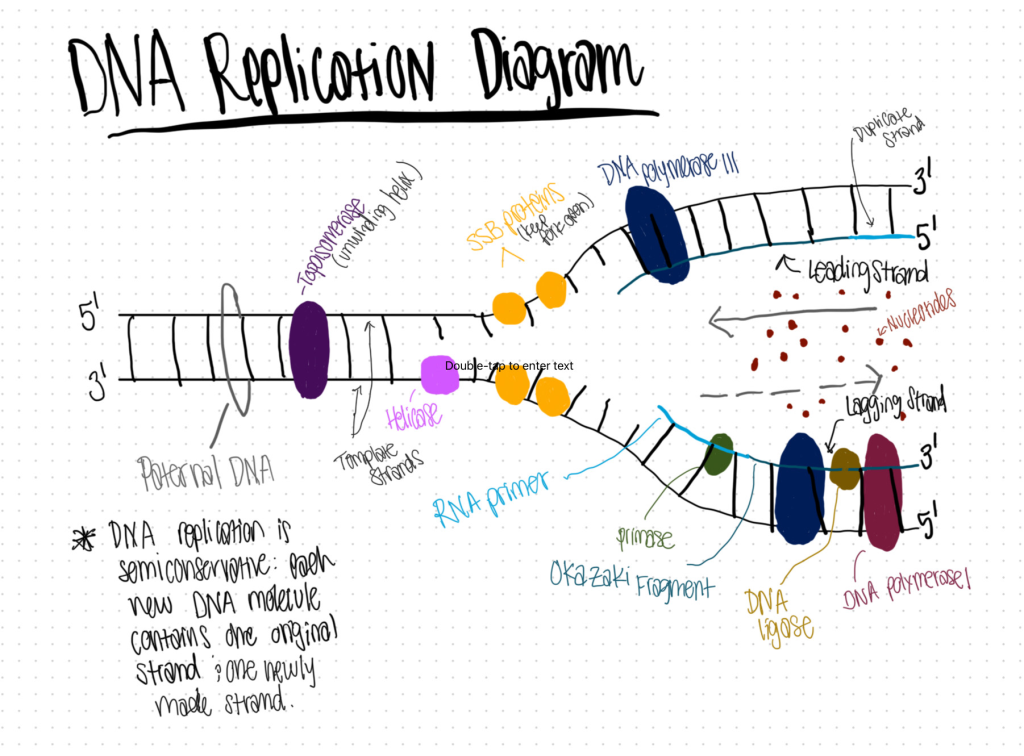 DNA Replication Diagram
Duplicate
strand
DNA polymerase III
3'
Topoisomerase
(unwinding helix)
SSB proteins
(keep
fork open)
5'
Leading strand
Nucleotides
5'
Double-tap to enter text
3'
Helicase
Lagging Strand
Template
strands
Paternal DNA
3'
RNA primer
5'
primase
Okazaki Fragment
DNA
ligase
DNA polymerase I
* DNA replication is
semiconservative: each
new DNA molecule
contains one original
strand ; one newly
made strand.